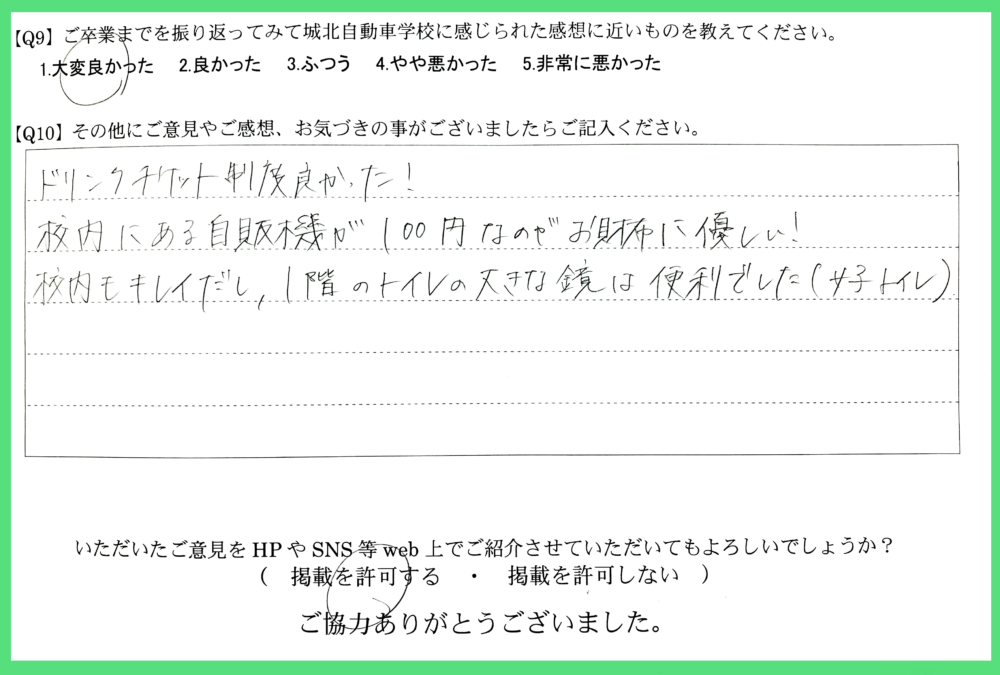 【Q9】ご卒業までを振り返ってみて城北自動車学校に感じられた感想に近いものを教えてください。
1.大変良かった 2.良かった 3.ふつう 4.やや悪かった 5.非常に悪かった
【Q10】その他にご意見やご感想、お気づきの事がございましたらご記入ください。
ドリンクチケット制度良かった!
校内にある自販機が100円なのがお財布に優しい!
校内もキレイだし,1階のトイレの大きな鏡は便利でした(女子トイレ)
いただいたご意見をHPやSNS等web上でご紹介させていただいてもよろしいでしょうか?
( 掲載を許可する ・ 掲載を許可しない )
ご協力ありがとうございました。